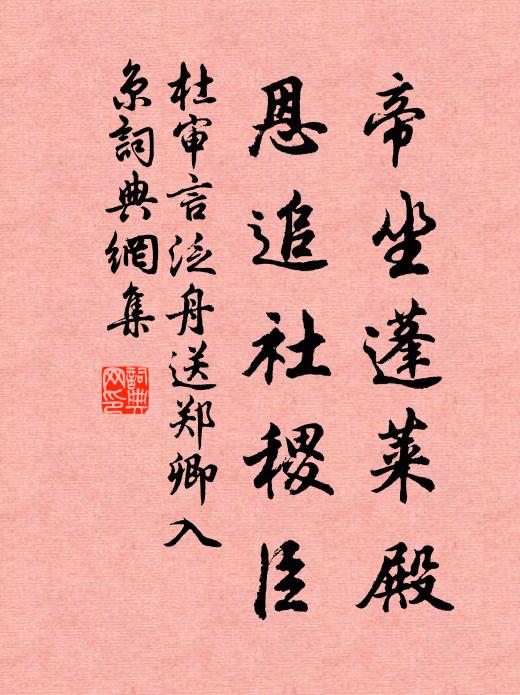 帝坐蓬莱殿
恩追社稷臣
杜审言泛舟送郑卿入
京詞典網集
詞典
网印